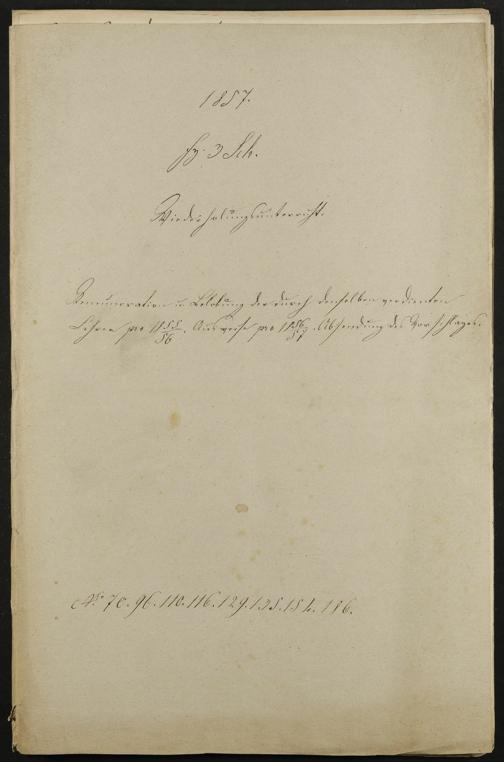 1857.
fz. 3 Sch.
Wiederholungsunterricht.
Remuneration u. Belobung der durch denselben verdienten
Lehrer pro 1855/56. Ausweise pro 1856/57. Absendung des Vorschlages.
No. 70. 96. 110. 116. 129. 138. 154. 186.